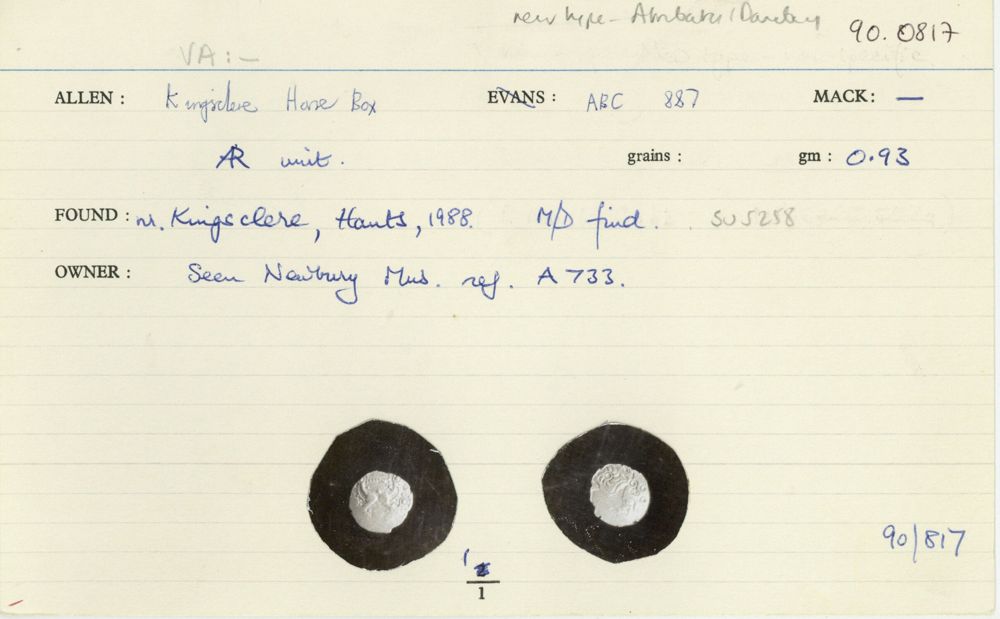 new type - Atrebates/Danebury 90.0817
VA:-
ALLEN: Kingsclere Horse Box EVANS: ABC 887 MACK: —
AR unit. grains: gm: 0.93
FOUND: nr. Kingsclere, Hants, 1988. M/D find. SU5258
OWNER: Seen Newbury Mus. ref. A733.
90/817
1
1